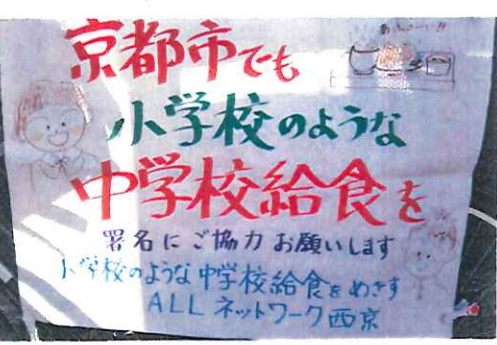 京都市でも
小学校のような
中学校給食を
署名にご協力お願いします
小学校のような中学校給食をめざす
ALLネットワーク西京